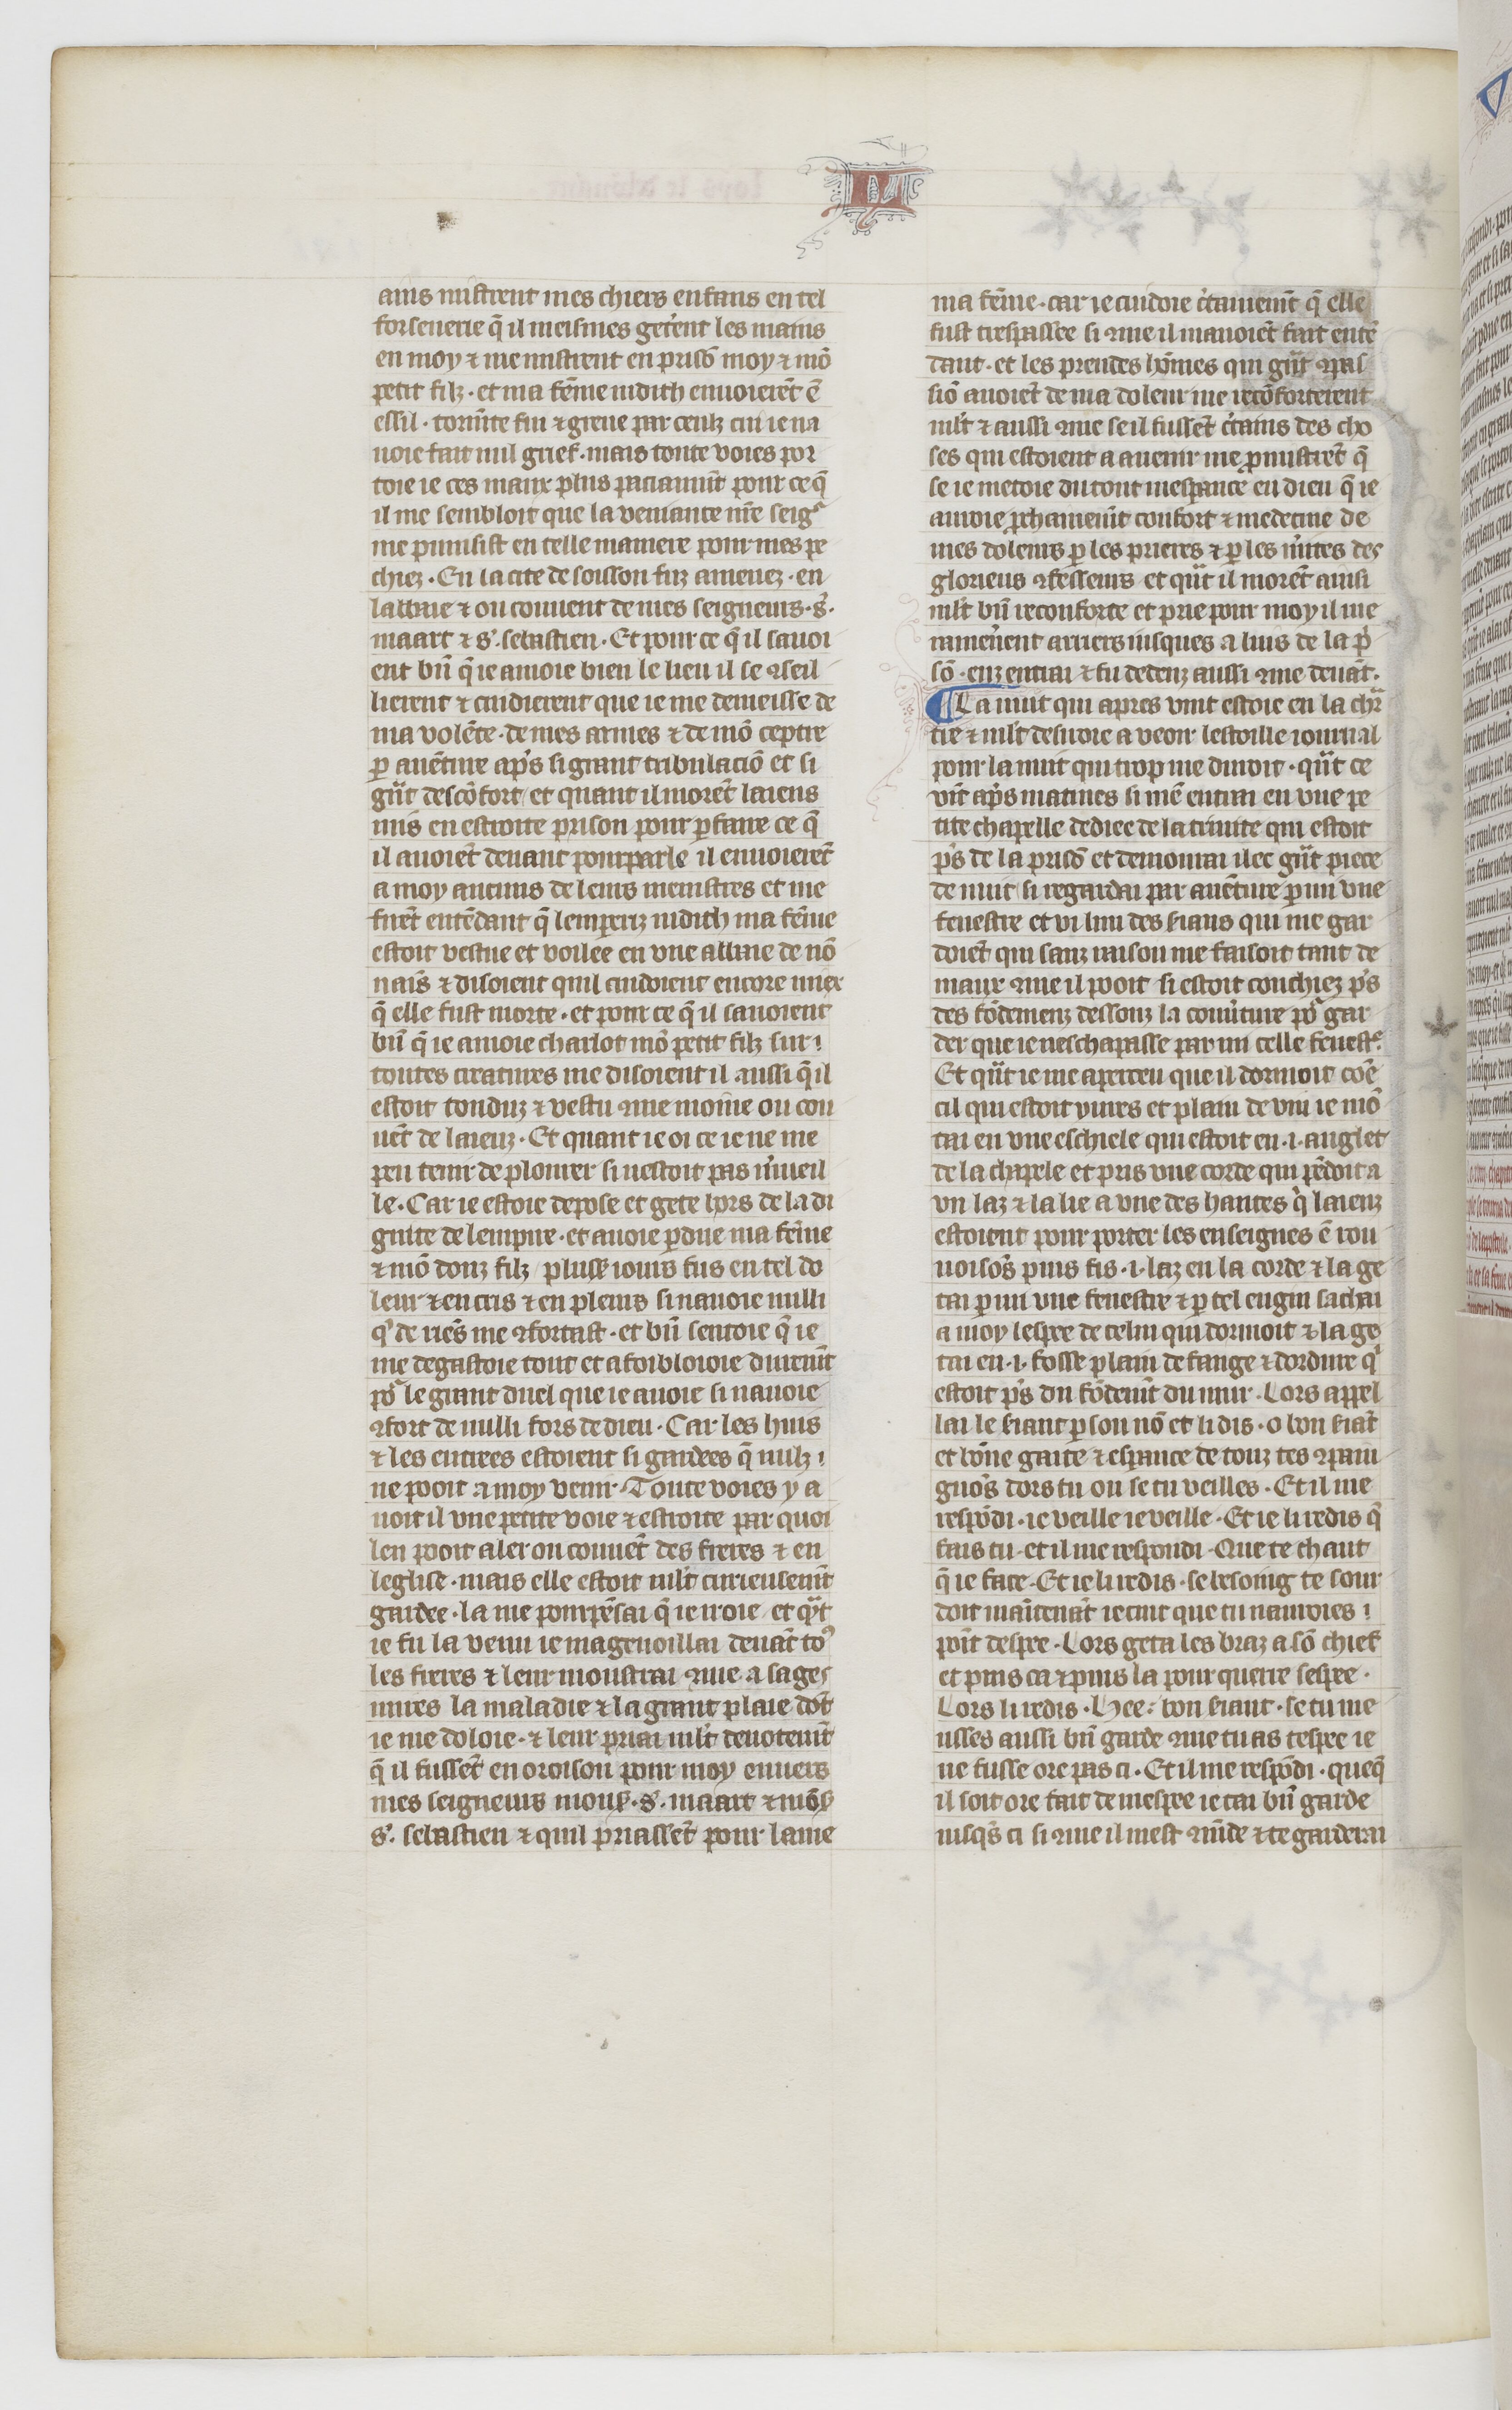 L
ains mistrent mes chiers enfans en tel
forsenerie q̃ il meismes geterẽt les mains
en moy ⁊ me mistrent en prisõ moy ⁊ mõ
petit filz · et ma fẽme iudith enuoierẽt ẽ
essil · tormẽte fui ⁊ greue par ceulz cui ie na
uoie fait nul grief · mais toute voies por
toie ie ces maux plus paciaumt̃ pour ce q̃
il me sembloit que la veniance nr̃e seigr
me punisist en telle maniere pour mes pe
chiez · En la cite de soisson fuz amenez · en
labbaie ⁊ ou couuent de mes seigneurs · s̃ ·
maart ⁊ s̃ · sebastien · Et pour ce q̃ il sauoi
ent bñ q̃ ie amoie bien le lieu il se ꝯseil
lierent ⁊ cuidierent que ie me demeisse de
ma volẽte · de mes armes ⁊ de mõ ceptre
ꝑ auẽture apr̃s si grant tribulaciõ et si
gñt descõfort / et quant il morẽt laiens
mis en estroite prison pour ꝑfaire ce q̃
il auoiẽt deuant pourparle il enuoierẽt
a moy aucuns de leurs menistres et me
firẽt entẽdant q̃ lemperiz iudith ma fẽme
estoit vestue et voilee en vne abbaie de nõ
nais̃ ⁊ disoient quil cuidoient encore miex
q̃ elle fust morte · et pour ce q̃ il sauoient
bñ q̃ ie amoie charlot mõ petit filz sur ı
toutes creatures me disoient il aussi q̃ il
estoit tonduz ⁊ vestu ꝯme moine ou cou
uẽt de laienz · Et quant ie oi ce ie ne me
peu tenir de plourer si nestoit pas m̃ueil
le · Car ie estoie depose et gete hors de la di
gnite de lempire · et auoie ꝑdue ma fẽme
⁊ mõ douz filz / pluss̃ iours fus en tel do
leur ⁊ en cris ⁊ en pleurs si nauoie nulli
qi de riẽs me ꝯfortast · et bñ sentoie q̃ ie
me degastoie tout et afoibloioie durem̃t
por le grant duel que ie auoie si nauoie
ꝯfort de nulli fors de dieu · Car les huis
⁊ les entrees estoient si gardees q̃ nulz ı
ne pooit a moy venir · Toute voies y a
uoit il vne petite voie ⁊ estroite par quoi
len pooit aler ou couuẽt des freres ⁊ en
leglise · mais elle estoit ml̃t curieusem̃t
gardee · la me pourpẽsai q̃ ie iroie / et qant
ie fu la venu ie magenoillai deuãt toꝰ
les freres ⁊ leur moustrai ꝯme a sages
mires la maladie ⁊ la grant plaie dõt
ie me doloie · ⁊ leur priai ml̃t deuotem̃t
q̃ il fussẽt en oroison pour moy enuers
mes seigneurs mons̃ · s̃ · maart ⁊ mõs̃
s̃ · sebastien ⁊ quil priassẽt pour lame
ma fẽme · car ie cuidoie c̃tainem̃t q̃ elle
fust trespassee si ꝯme il mauoiẽt fait entẽ
dant · et les preudes hõmes qui gñt ꝯpas
siõ auoiẽt de ma doleur me recõforterent
ml̃t ⁊ aussi ꝯme se il fussẽt c̃tains des cho
ses qui estoient a auenir me ꝓmistrẽt q̃
se ie metoie du tout mesꝑance en dieu q̃ ie
auroie ꝓchainem̃t confort ⁊ medecine de
mes doleurs ꝑ les prieres ⁊ ꝑ les m̃ites des
glorieus ꝯfesseurs et qñt il morẽt ainsi
ml̃t bñ reconforte et prie pour moy il me
ramen̾ent arriers iusques a luis de la pi
sõ · enz entrai ⁊ fu dedenz aussi ꝯme deuãt ·
¶ La nuit qui apres vint estoie en la char
tre ⁊ ml̃t desirroie a veoir lestoille iournal
pour la nuit qui trop me duroit · qñt ce
vĩt apr̃s matines si mẽ entrai en vne pe
tite chapelle dediee de la trinite qui estoit
pr̃s de la prisõ et demourai ilec gñt piece
de nuit / si regardai par auẽture ꝑ mi vne
fenestre et vi lun des sians qui me gar
doiẽt qui sanz raison me faisoit tant de
maux ꝯme il pooit si estoit couchiez pr̃s
des fõdemenz dessouz la couu̾ture por gar
der que ie neschapasse par mi celle fenestre
Et qñt ie me aperceu que il dormoit cõe
cil qui estoit yures et plain de vin ie mõ
tai en vne eschiele qui estoit en · i · anglet
de la chapele et pris vne corde qui pẽdoit a
vn laz ⁊ la lie a vne des hantes qi laienz
estoient pour porter les enseignes ẽ rou
uoisõs puis fis · i · laz en la corde ⁊ la ge
tai ꝑ mi vne fenestre ⁊ ꝑ tel engin sachai
a moy lespee de celui qui dormoit ⁊ la ge
tai en · i · fosse plain de fange ⁊ dordure qi
estoit pr̃s du fõdem̃t du mur · Lors appel
lai le siant ꝑ son nõ et li dis · o bon siãt
et bõne gaite ⁊ esꝑance de touz tes ꝯpai
gnõs dors tu ou se tu veilles · Et il me
respõdi · ie veille ie veille · Et ie li redis q̃
fais tu · et il me respondi · Que te chaut
q̃ ie face · Et ie li redis · se besoing te sour
doit maĩtenãt ie cuit que tu nauroies ı
poĩt despee · Lors geta les braz a sõ chief
et puis ca ⁊ puis la pour querre sespee ·
Lors li redis · Hee · bon siant · se tu me
usses aussi bñ garde ꝯme tu as tespee ie
ne fusse ore pas ci · Et il me respõdi · queq̃
il soit ore fait de mespee ie tai bñ garde
iusqs̃ ci si ꝯme il mest ꝯmãde ⁊ te garderai